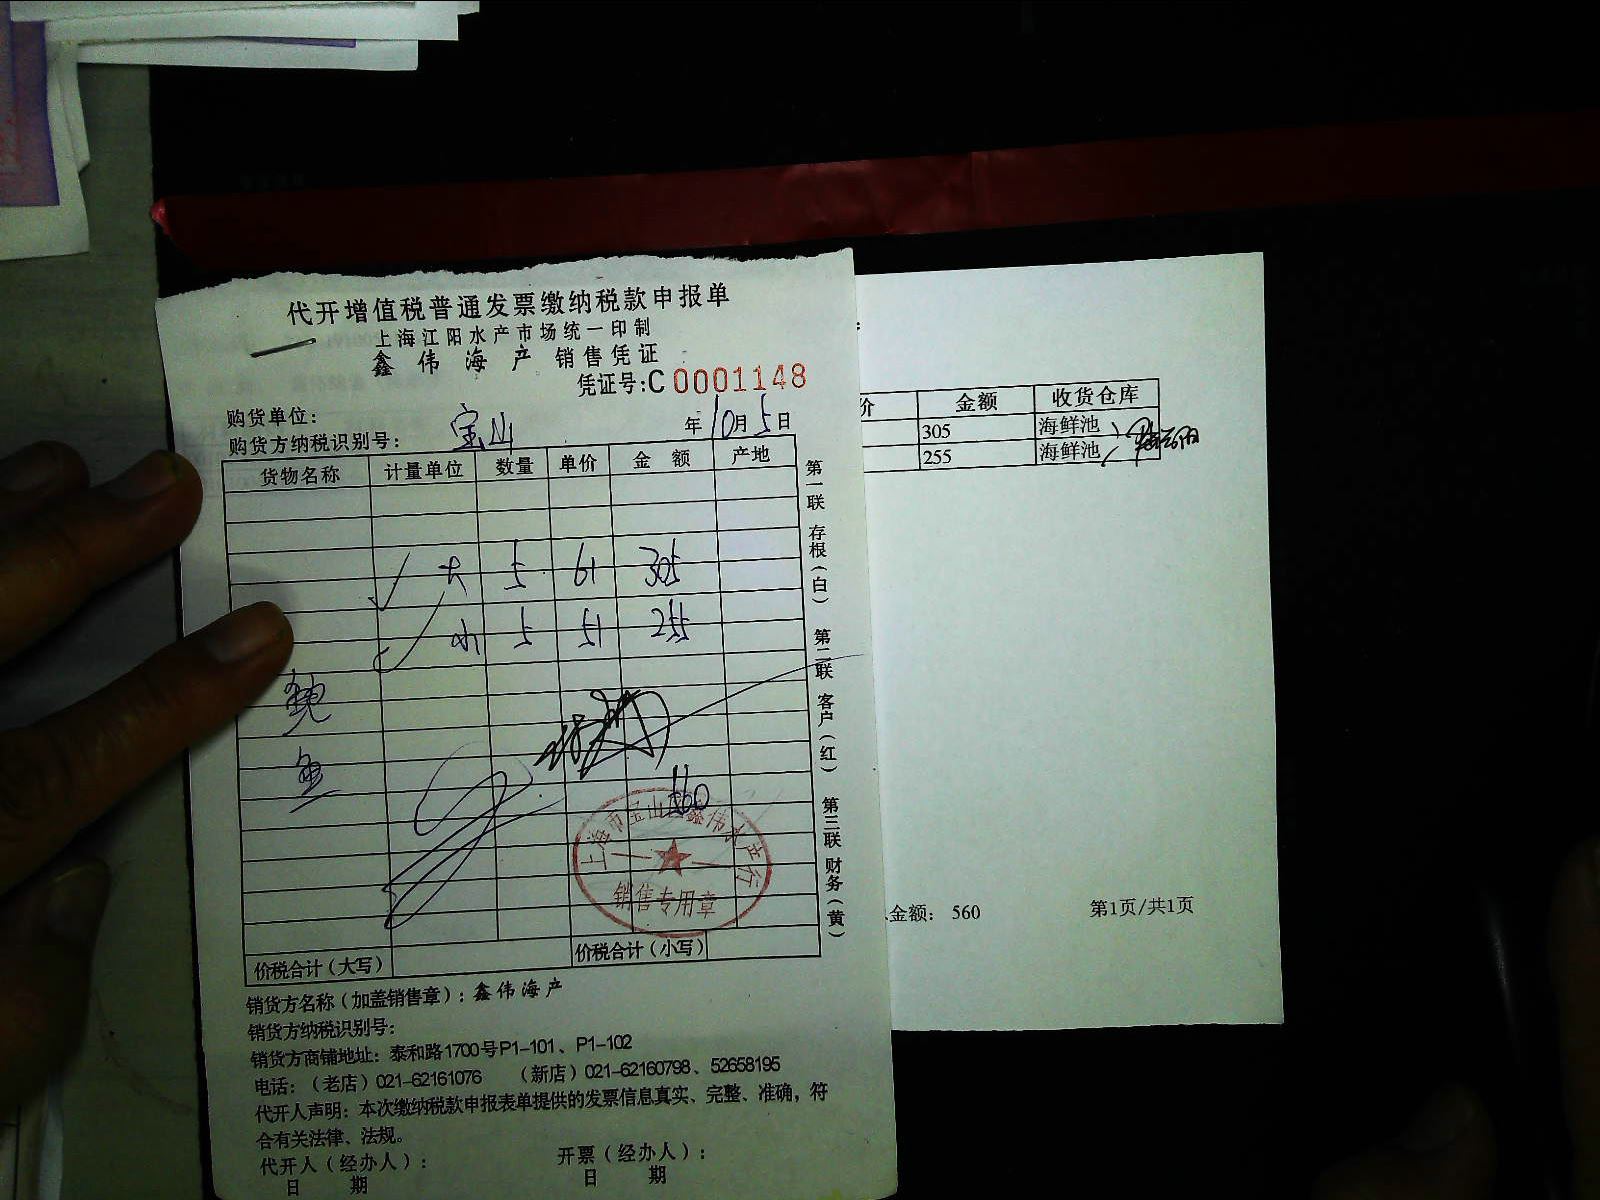 代开增值税普通发票缴纳税款申报单
上海江阳水产市场统一印制
鑫伟海产 销售凭证
凭证号:C 0001148
购货单位:
购货方纳税识别号: 宝山 年10月5日
货物名称 计量单位 数量 单价 金额 产地
大 5 61 305
小 5 51 255
鲍
鱼
560
上海市宝山区鑫伟水产行
销售专用章
价税合计(大写) 价税合计(小写)
销货方名称(加盖销售章):鑫伟海产
销货方纳税识别号:
销货方商铺地址:泰和路1700号P1-101、P1-102
电话:(老店)021-62161076 (新店)021-62160798、52658195
代开人声明:本次缴纳税款申报表单提供的发票信息真实、完整、准确,符
合有关法律、法规。
代开人(经办人): 开票(经办人):
日 期 日 期
第一联 存根(白) 第二联 客户(红) 第三联 财务(黄)
价 金额 收货仓库
305 海鲜池
255 海鲜池
金额: 560 第1页/共1页